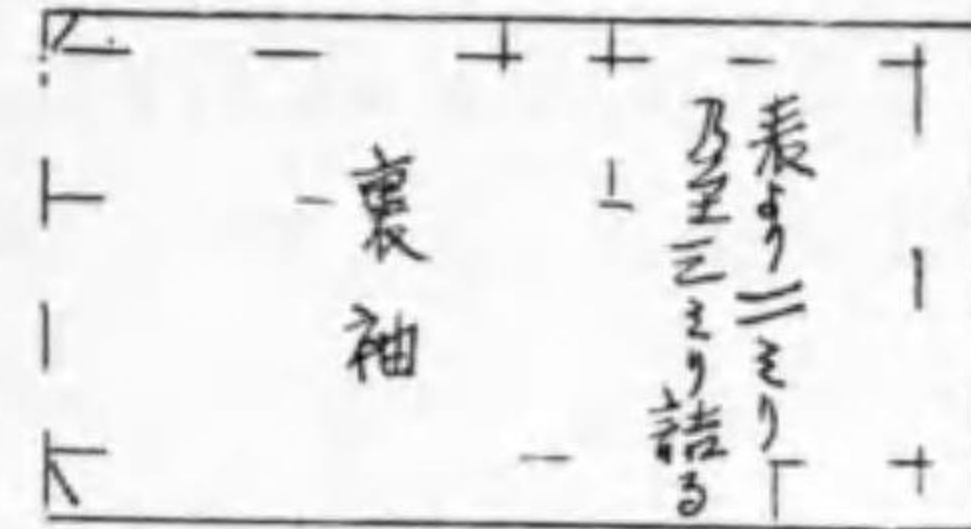 表より二ミリ
乃至三ミリ詰る
裏袖